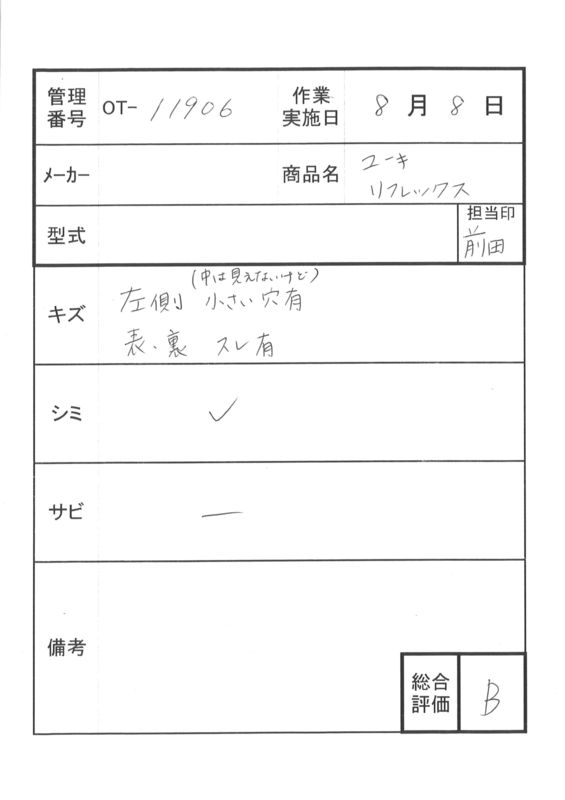 管理番号 OT- 11906 作業実施日 8 月 8 日
メーカー 商品名 ユーキ
リフレックス
型式 担当印 前田
キズ (中は見えないけど)
左側 小さい穴有
表、裏 スレ有
シミ ✓
サビ ー
備考
総合評価 B